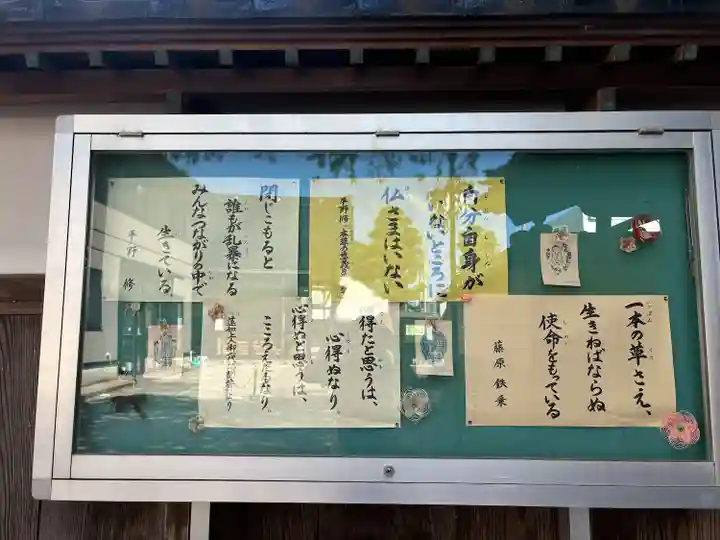 自分自身が
いないところに
仏さまはいない
閉じこもると
誰もが乱暴になる
みんなつながりの中で
生きている。
平野 修
一本の草さえ、
生きねばならぬ
使命をもっている
藤原 鉄乗
得たと思うは、
心得ぬなり。
心得ぬと思うは、
こころえたるなり。